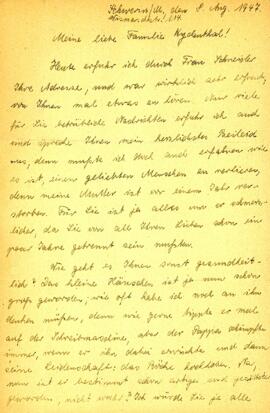 Schwerin/M., den 8. Aug. 1947.
Bismarckstr. 14.
Meine liebe Familie Kydenthal!
Heute erfuhr ich durch Frau Schreisler
Ihre Adresse, und war wirklich sehr erfreut,
von Ihnen mal etwas zu hören. Nur viele
für Sie betrübliche Nachrichten erfuhr ich und
und spreche Ihnen mein herzlichstes Beileid
aus, denn mußte ich doch auch erfahren wie
es ist, einen geliebten Menschen zu verlieren,
denn meine Mutter ist vor einem Jahr ver-
storben. Für Sie ist ja alles um so schmerz-
, da Sie von all Ihren Lieben schon ein
paar Jahre getrennt sein mußten.
Wie geht es Ihnen sonst gesundheit-
lich? Das kleine Hänschen ist ja nun schon
groß geworden; wie oft habe ich noch an ihn
denken müssen, denn wie gerne tippte er mal
auf der Schreibmaschine, aber der Pappa schimpfte
immer, wenn er ihn dabei erwischte und dann
seine Leidenschaft: das
nun ist er bestimmt schon artiger und
geworden, nicht wahr? Ich würde Sie ja alle